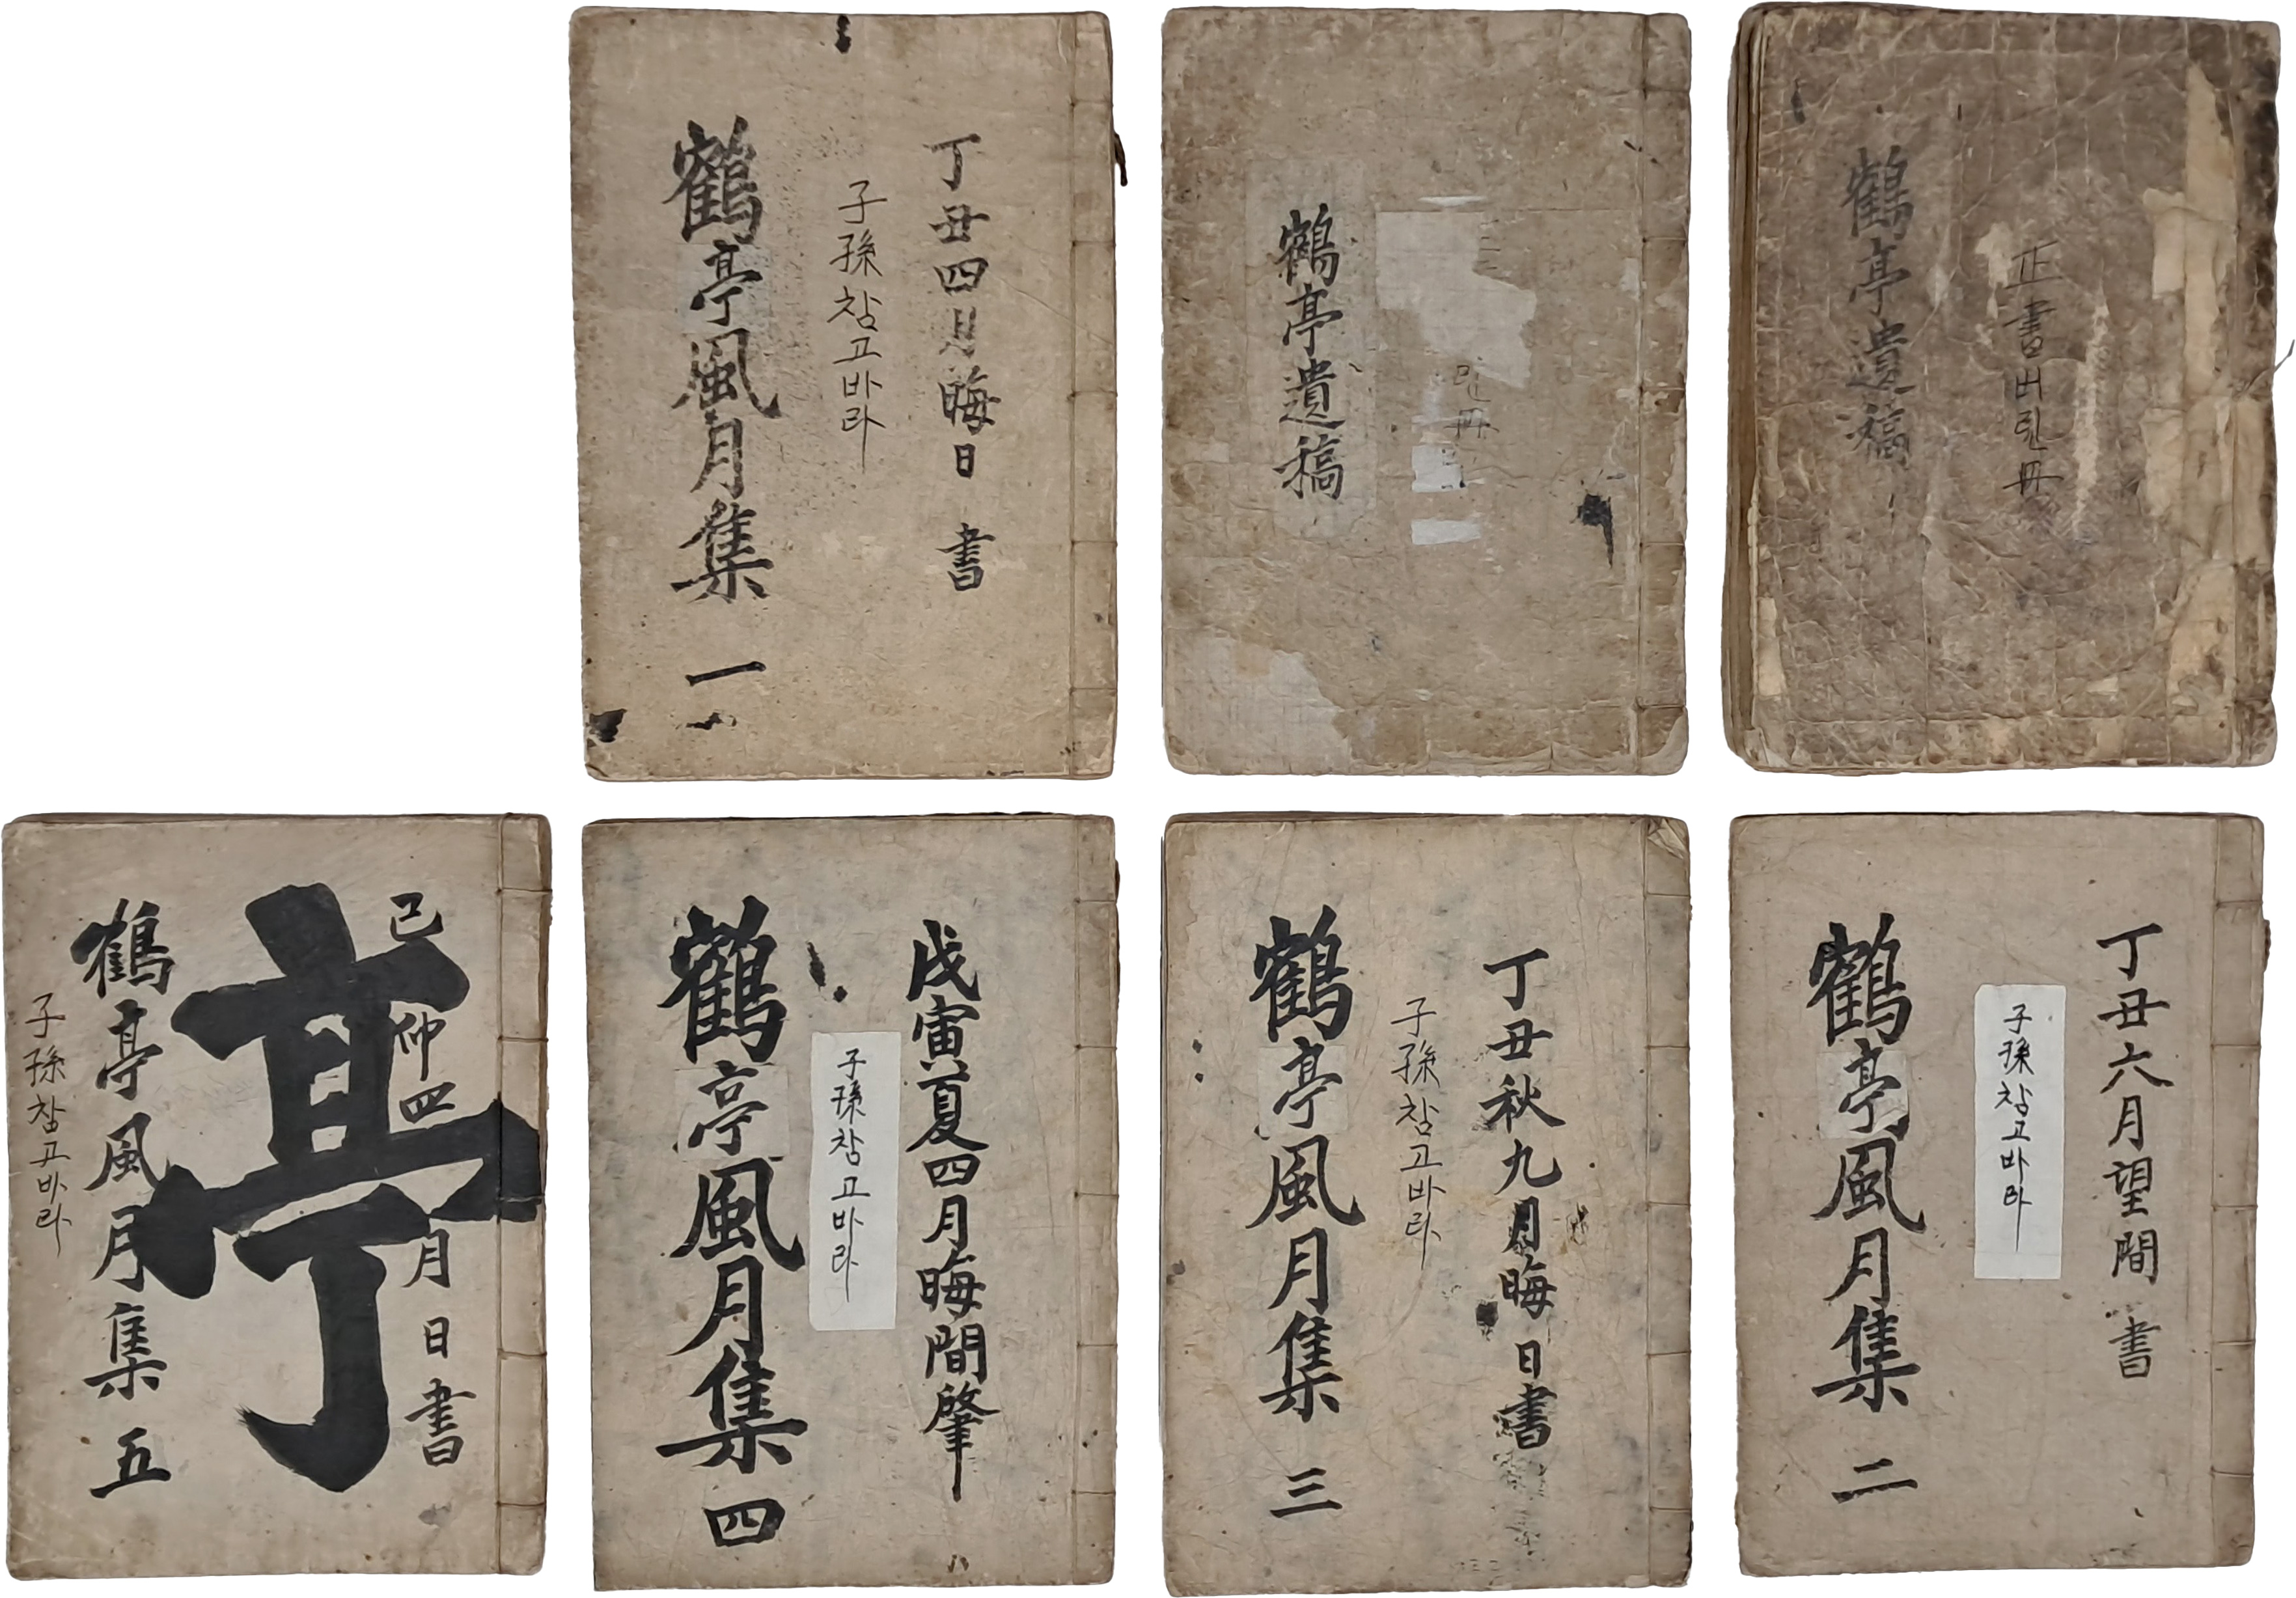 正書버린冊
鶴亭遺稿
린冊
鶴亭遺稿
丁丑四月晦日 書
子孫참고바라
鶴亭風月集 一
丁丑六月望間 書
子孫참고바라
鶴亭風月集 二
丁丑秋九月晦日書
子孫참고바라
鶴亭風月集 三
戊寅夏四月晦間肇
子孫참고바라
鶴亭風月集 四
己卯四月日書
亭
鶴亭風月集 五
子孫참고바라